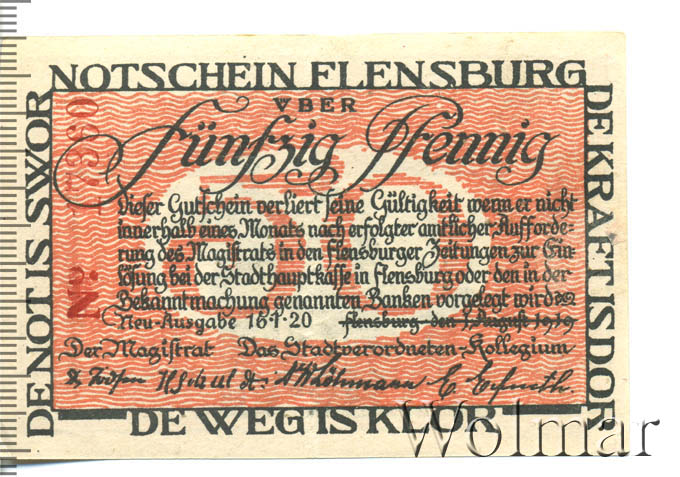 NOTSCHEIN FLENSBURG
DE NOT IS SWOR
DE KRAFT IS DOR
DE WEG IS KLOR
VBER
Fünfzig Pfennig
Dieser Gutschein verliert seine Gültigkeit wenn er nicht
innerhalb eines Monats nach erfolgter amtlicher Aufforde-
rung des Magistrats in den Flensburger Zeitungen zur Ein-
lösung bei der Stadthauptkasse in Flensburg oder den in der
Bekanntmachung genannten Banken vorgelegt wird
Neu-Ausgabe 16·1·20 Flensburg den 1. August 1919
Der Magistrat Das Stadtverordneten-Kollegium
No. 17360
50
Wolmar